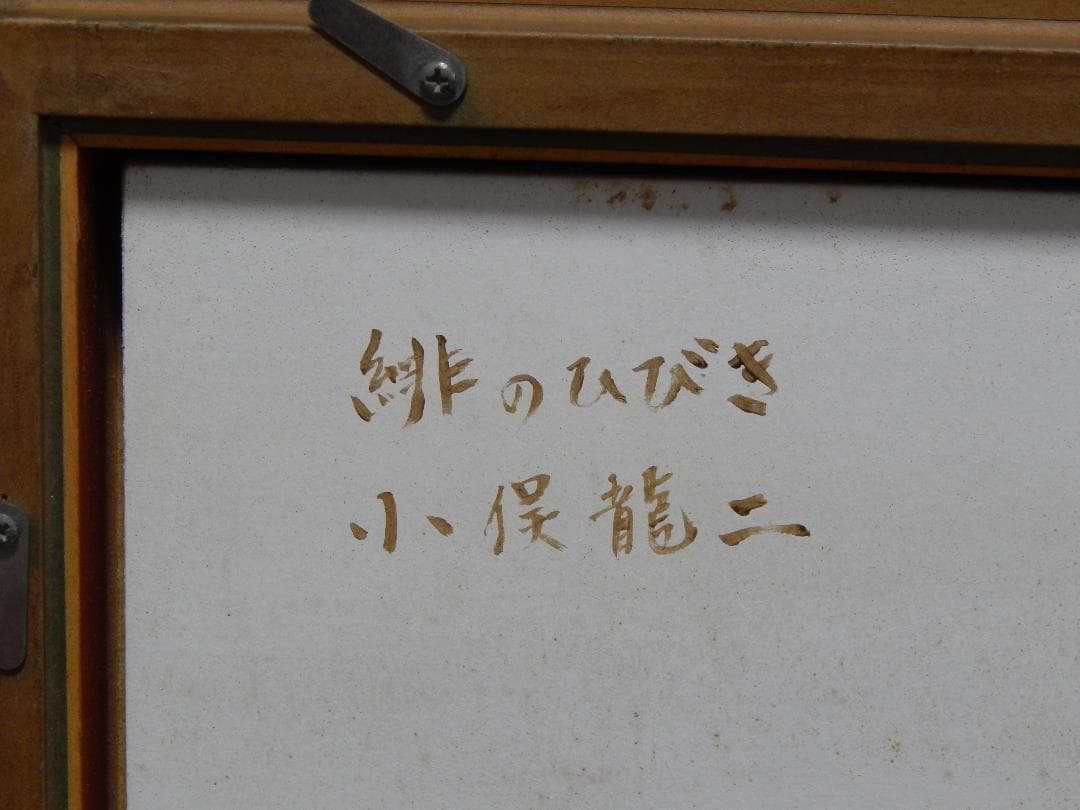 緋のひびき
小俣龍二